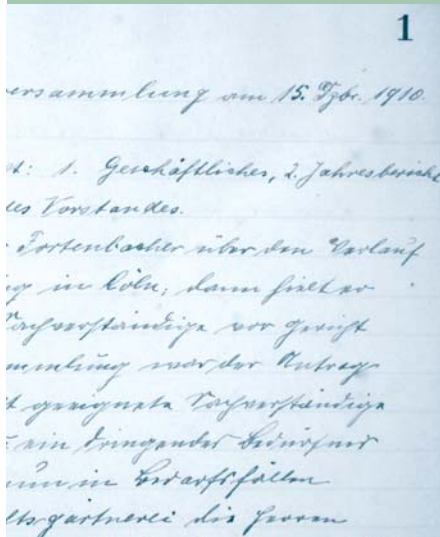 1
ersammlung am 15. Dzbr. 1910.
t: 1. Geschäftliches, 2. Jahresbericht
des Vorstandes.
Fortenbacher über den Verlauf
g in Köln; dann hielt er
Sachverständige vor Gericht
mmlung war der Antrag
t geeignete Sachverständige
ein dringendes Bedürfnis
nun in Bedarfsfällen
ltsgärtnerei die Herren